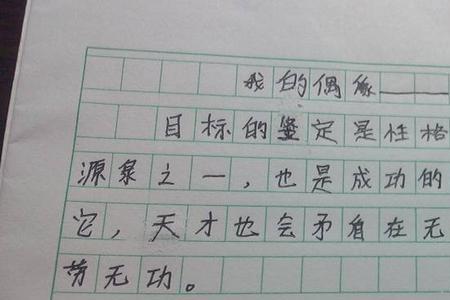 我的偶像——
目标的鉴定是性格
源泉之一，也是成功的
它，天才也会矛盾在无
劳无功。